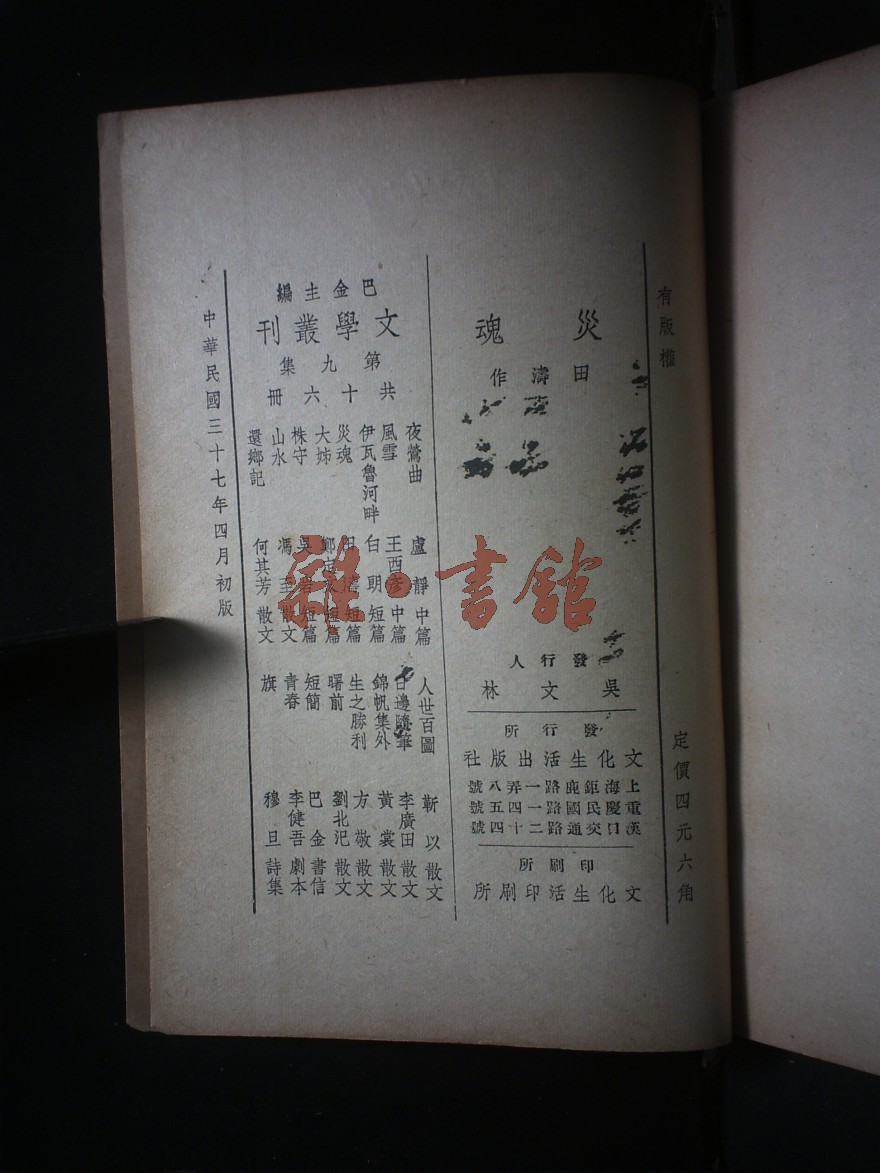 有版權
定價四元六角
災魂
田濤作
發行人
吳文林
發行所
文化生活出版社
上海鉅鹿路一弄八號
重慶民國路一四五號
漢口交通路二十四號
印刷所
文化生活印刷所
巴金主編
文學叢刊
第九集
共十六冊
夜鶯曲 盧靜 中篇
風雪 王西彥 中篇
伊瓦魯河畔 白朗 短篇
災魂 田濤 短篇
大姊 鄭定文 短篇
株守 吳岩 短篇
山水 馮至 散文
還鄉記 何其芳 散文
人世百圖 靳以 散文
日邊隨筆 李廣田 散文
錦帆集外 黃裳 散文
生之勝利 方敬 散文
曙前 劉北汜 散文
短簡 巴金 書信
青春 李健吾 劇本
旗 穆旦 詩集
中華民國三十七年四月初版
雜·書館